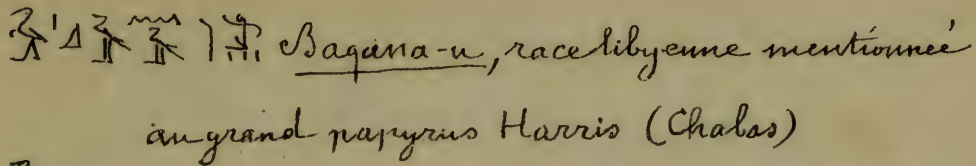 Baqana-u, race libyenne mentionnée
au grand papyrus Harris (Chabas)